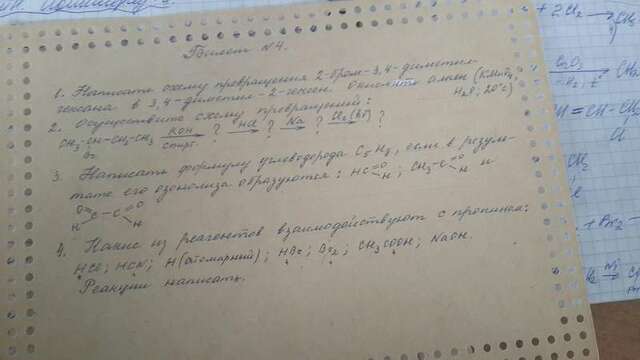 Билет №4.
1. Написать схему превращения 2-бром-3,4-диметил-
гексана в 3,4-диметил-2-гексен. Окислить алкен (KMnO4,
H2O, 20°C)
2. Осуществите схему превращений:
CH3-CH-CH2-CH3 KOH спирт. ? HCl ? Na ? Cl2(hν) ?
Br
3. Написать формулу углеводорода C5H8, если в резуль-
тате его озонолиза образуются: HC=O H ; CH3-C=O H и
O=C-C=O
H H
4. Какие из реагентов взаимодействуют с пропином:
HCl; HCN; H (атомарный); HBr; Br2; CH3COOH; NaOH.
Реакции написать.
+ 2Cl2 → CH2
Cr2O3
-H2, t°
CH2
CH = CH - CH2
Cl
+ Br2
Ni